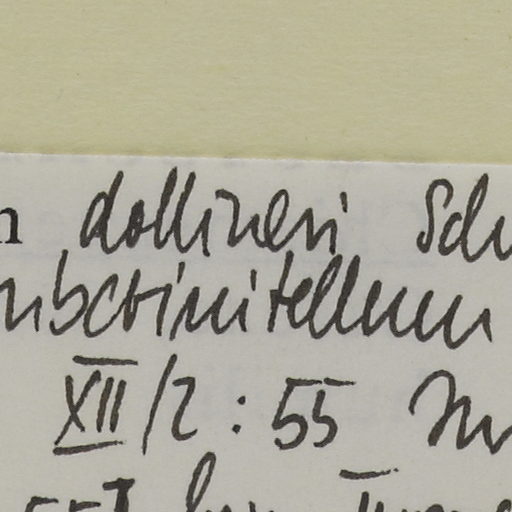 n dollineri Sch
ubcrinitellum
XII/2:55